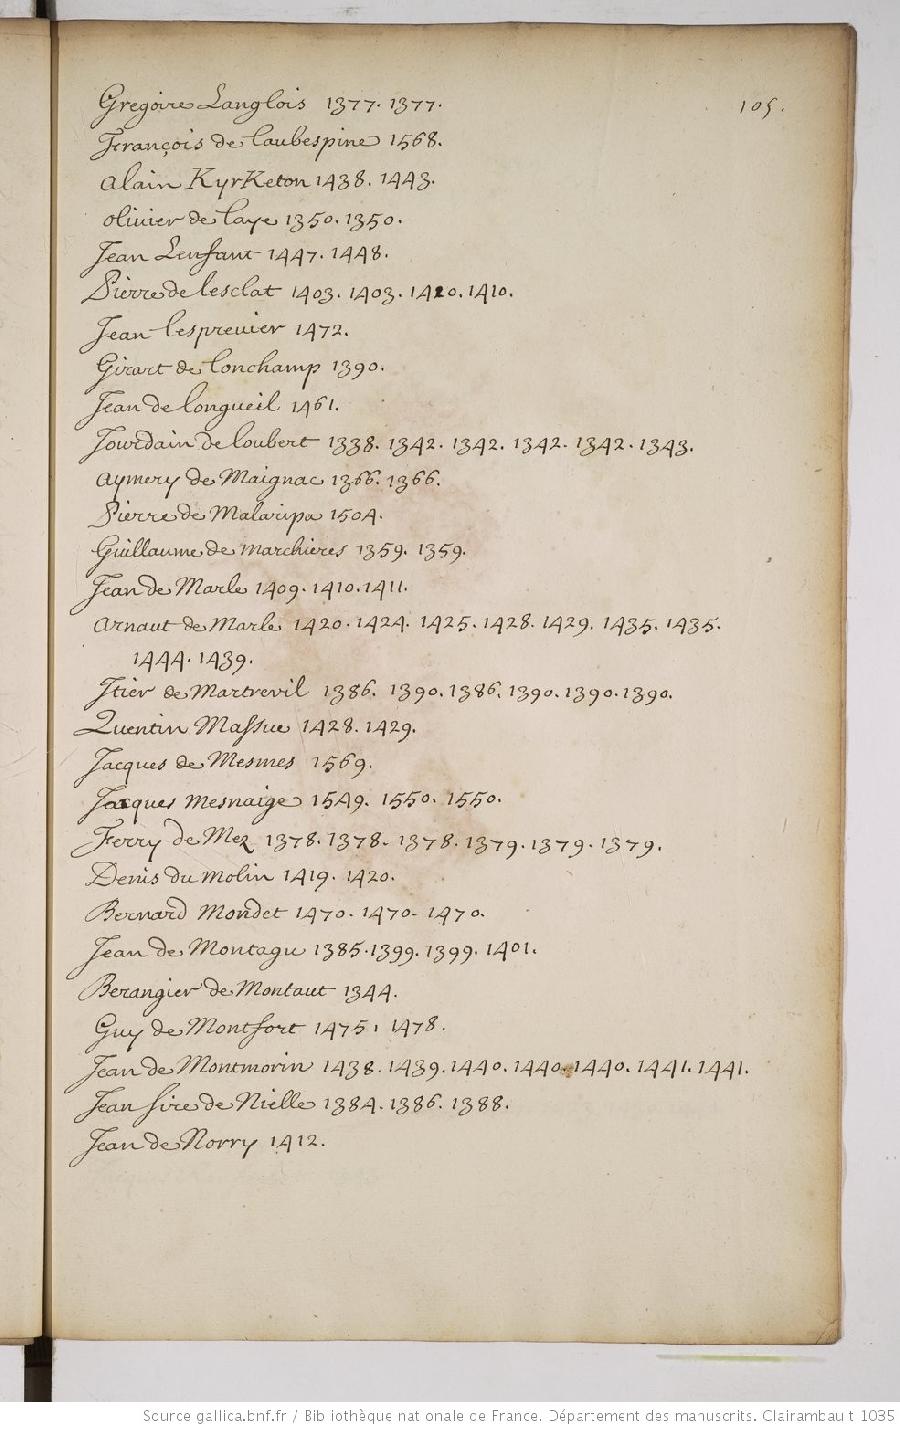 Gregoire Langlois 1377. 1377.
105.
François de Laubespine 1568.
Alain KyrKeton 1438. 1443.
Olivier de Laye 1350. 1350.
Jean Lenfant 1447. 1448.
Pierre de Lesclat 1403. 1403. 1420. 1410.
Jean Lesprevier 1472.
Girart de Lonchamp 1390.
Jean de Longueil 1461.
Jourdain de Loubert 1338. 1342. 1342. 1342. 1342. 1343.
Aymery de Maignac 1366. 1366.
Pierre de Malaripa 1504.
Guillaume de Marchieres 1359. 1359.
Jean de Marle 1409. 1410. 1411.
Arnaut de Marle 1420. 1424. 1425. 1428. 1429. 1435. 1435.
1444. 1439.
Itier de Martrevil 1386. 1390. 1386. 1390. 1390. 1390.
Quentin Massue 1428. 1429.
Jacques de Mesmes 1569.
Jacques Mesnaige 1549. 1550. 1550.
Ferry de Mez 1378. 1378. 1378. 1379. 1379. 1379.
Denis du Molin 1419. 1420.
Bernard Mondet 1470. 1470. 1470.
Jean de Montagu 1385. 1399. 1399. 1401.
Berangier de Montaut 1344.
Guy de Montfort 1475. 1478.
Jean de Montmorin 1438. 1439. 1440. 1440. 1440. 1441. 1441.
Jean sire de Nielle 1384. 1386. 1388.
Jean de Norry 1412.
Source gallica.bnf.fr / Bibliothèque nationale de France. Département des manuscrits. Clairambault 1035